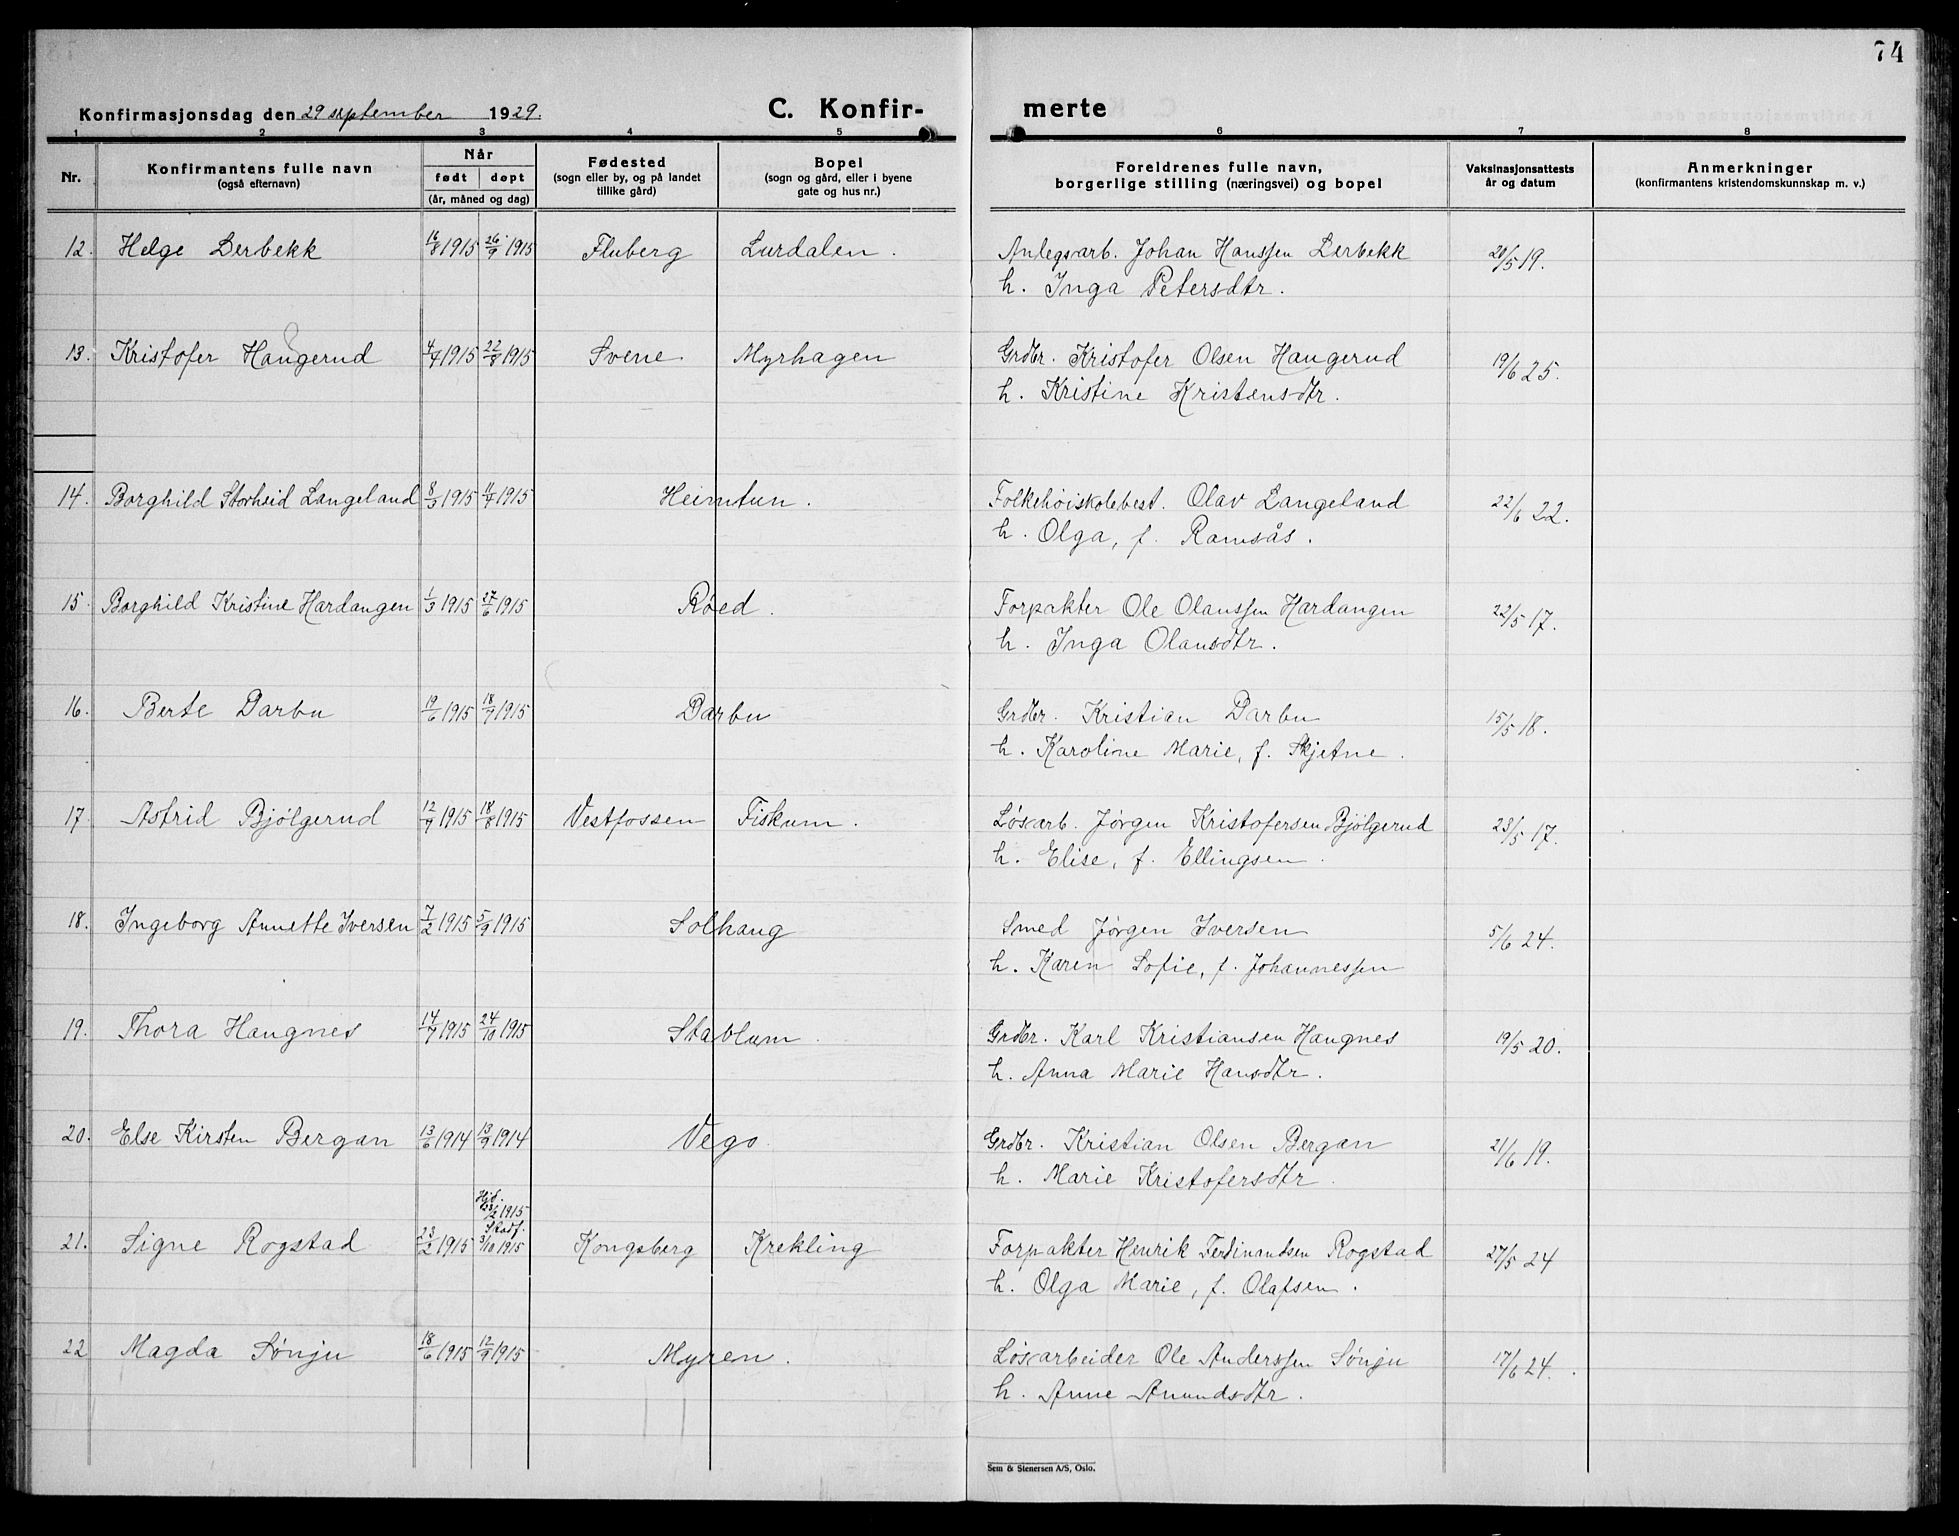 74
Konfirmasjonsdag den 29 september 1929. C. Konfir- merte
1 2 3 4 5 6 7 8
Nr. Konfirmantens fulle navn Når Fødested Bopel Foreldrenes fulle navn, Vaksinasjonsattests Anmerkninger
(også efternavn) født døpt (sogn eller by, og på landet (sogn og gård, eller i byene borgerlige stilling (næringsvei) og bopel år og datum (konfirmantens kristendomskunnskap m. v.)
(år, måned og dag) tillike gård) gate og hus nr.)
12. Helge Lerbekk 16/8 1915 26/9 1915 Fluberg Lurdalen. Anlegsarb. Johan Hanssen Lerbekk 20/5 19.
h. Inga Petersdtr.
13. Kristofer Haugerud 4/7 1915 22/8 1915 Svene Myrhagen Grdbr. Kristofer Olsen Haugerud 19/6 25.
h. Kristine Kristensdtr.
14. Borghild Storheid Langeland 8/3 1915 11/4 1915 Heimtun. Folkehöiskolebest. Olav Langeland 22/6 22.
h. Olga, f. Ramsås.
15. Borghild Kristine Hardangen 1/3 1915 27/6 1915 Røed. Forpakter Ole Olaussen Hardangen 22/5 17.
h. Inga Olausdtr.
16. Berte Darbu 19/6 1915 18/7 1915 Darbu Grdbr. Kristian Darbu 15/5 18.
h. Karoline Marie, f. Skjetne.
17. Astrid Bjölgerud 12/7 1915 18/8 1915 Vestfossen Fiskum. Løsarb. Jørgen Kristofersen Bjölgerud 23/5 17.
h. Elise, f. Ellingsen.
18. Ingeborg Annette Iversen 7/2 1915 5/9 1915 Solhaug Smed Jørgen Iversen 5/6 24.
h. Karen Sofie, f. Johannessen
19. Thora Haugnes 14/7 1915 24/10 1915 Stablum. Grdbr. Karl Kristiansen Haugnes 19/5 20.
h. Anna Marie Hansdtr.
20. Else Kirsten Bergan 13/6 1914 13/9 1914 Vego. Grdbr. Kristian Olsen Bergan 21/6 19.
h. Marie Kristofersdtr.
Hjd.
23/2 1915
Stadf.
21. Signe Rogstad 23/2 1915 3/10 1915 Kongsberg Krekling Forpakter Henrik Ferdinandsen Rogstad 27/5 24
h. Olga Marie, f. Olafsen.
22 Magda Sønju 18/6 1915 12/9 1915 Myren. Løsarbeider Ole Anderssen Sønju 17/6 24.
h. Anne Amundsdtr.
Sem & Stenersen A/S, Oslo.